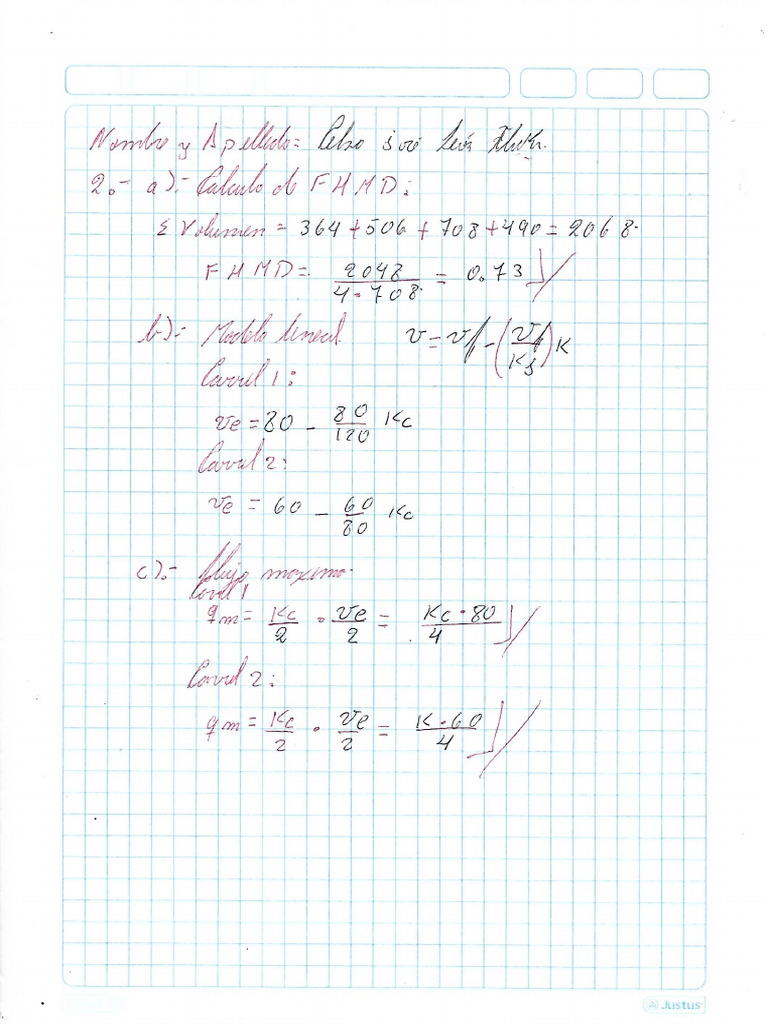 Nombre y Apellido= Celso José
2.- a).- Calculo de FHMD:
Σ Volumen = 364+506+708+490=2068.
FHMD= 2048 / 4·708 = 0.73
b).- Modelo lineal v=vf-(vf/Ks)K
Carril 1:
ve=80 - 80/120 Kc
Carril 2:
ve = 60 - 60/80 Kc
c).- flujo maximo.
Carril 1
qm= Kc/2 · ve/2 = Kc·80/4
Carril 2:
qm= Kc/2 · ve/2 = K·60/4
Justus